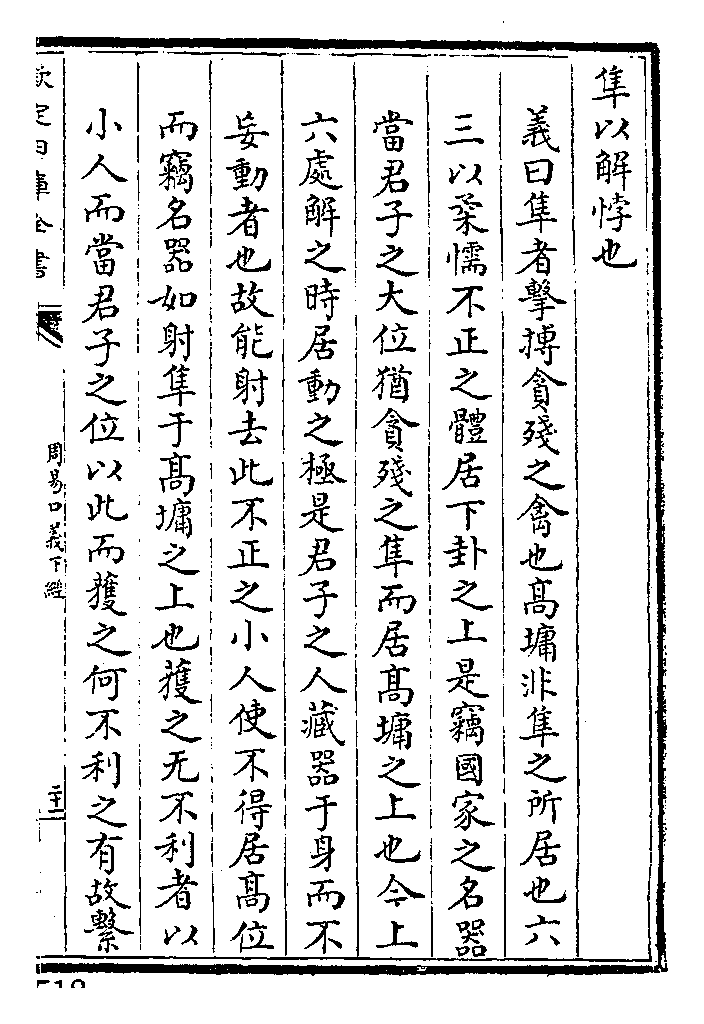 隼以解悖也
義曰隼者擊搏貪殘之禽也高墉非隼之所居也六
三以柔懦不正之體居下卦之上是竊國家之名器
當君子之大位猶貪殘之隼而居高墉之上也今上
六處解之時居動之極是君子之人藏器于身而不
妄動者也故能射去此不正之小人使不得居高位
而竊名器如射隼于高墉之上也獲之无不利者以
小人而當君子之位以此而獲之何不利之有故繫
欽定四庫全書
周易口義下經
二十二